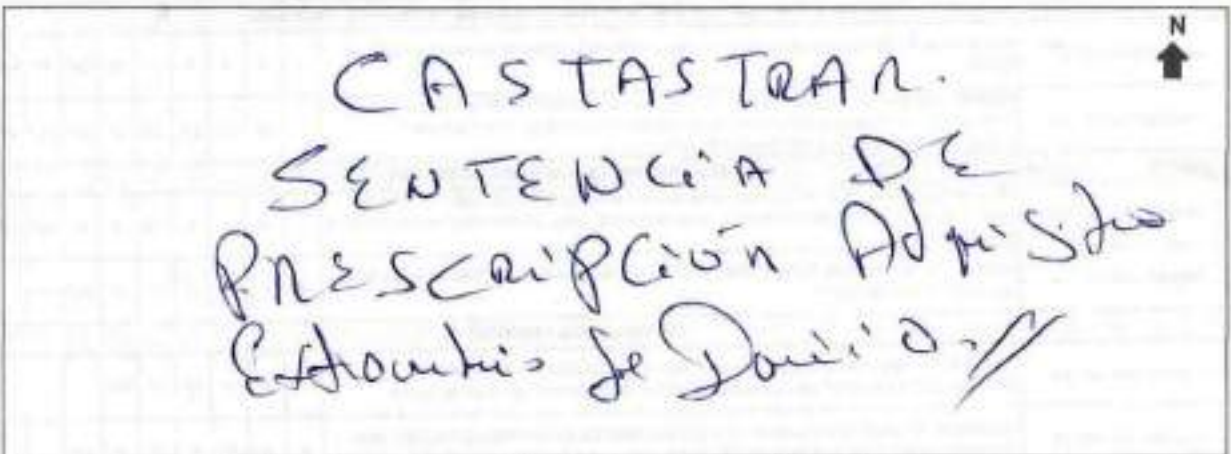 N
CASTASTRAR.
SENTENCIA DE
PRESCRIPCIÓN Adquisitiva
Extraordinaria de Dominio.//